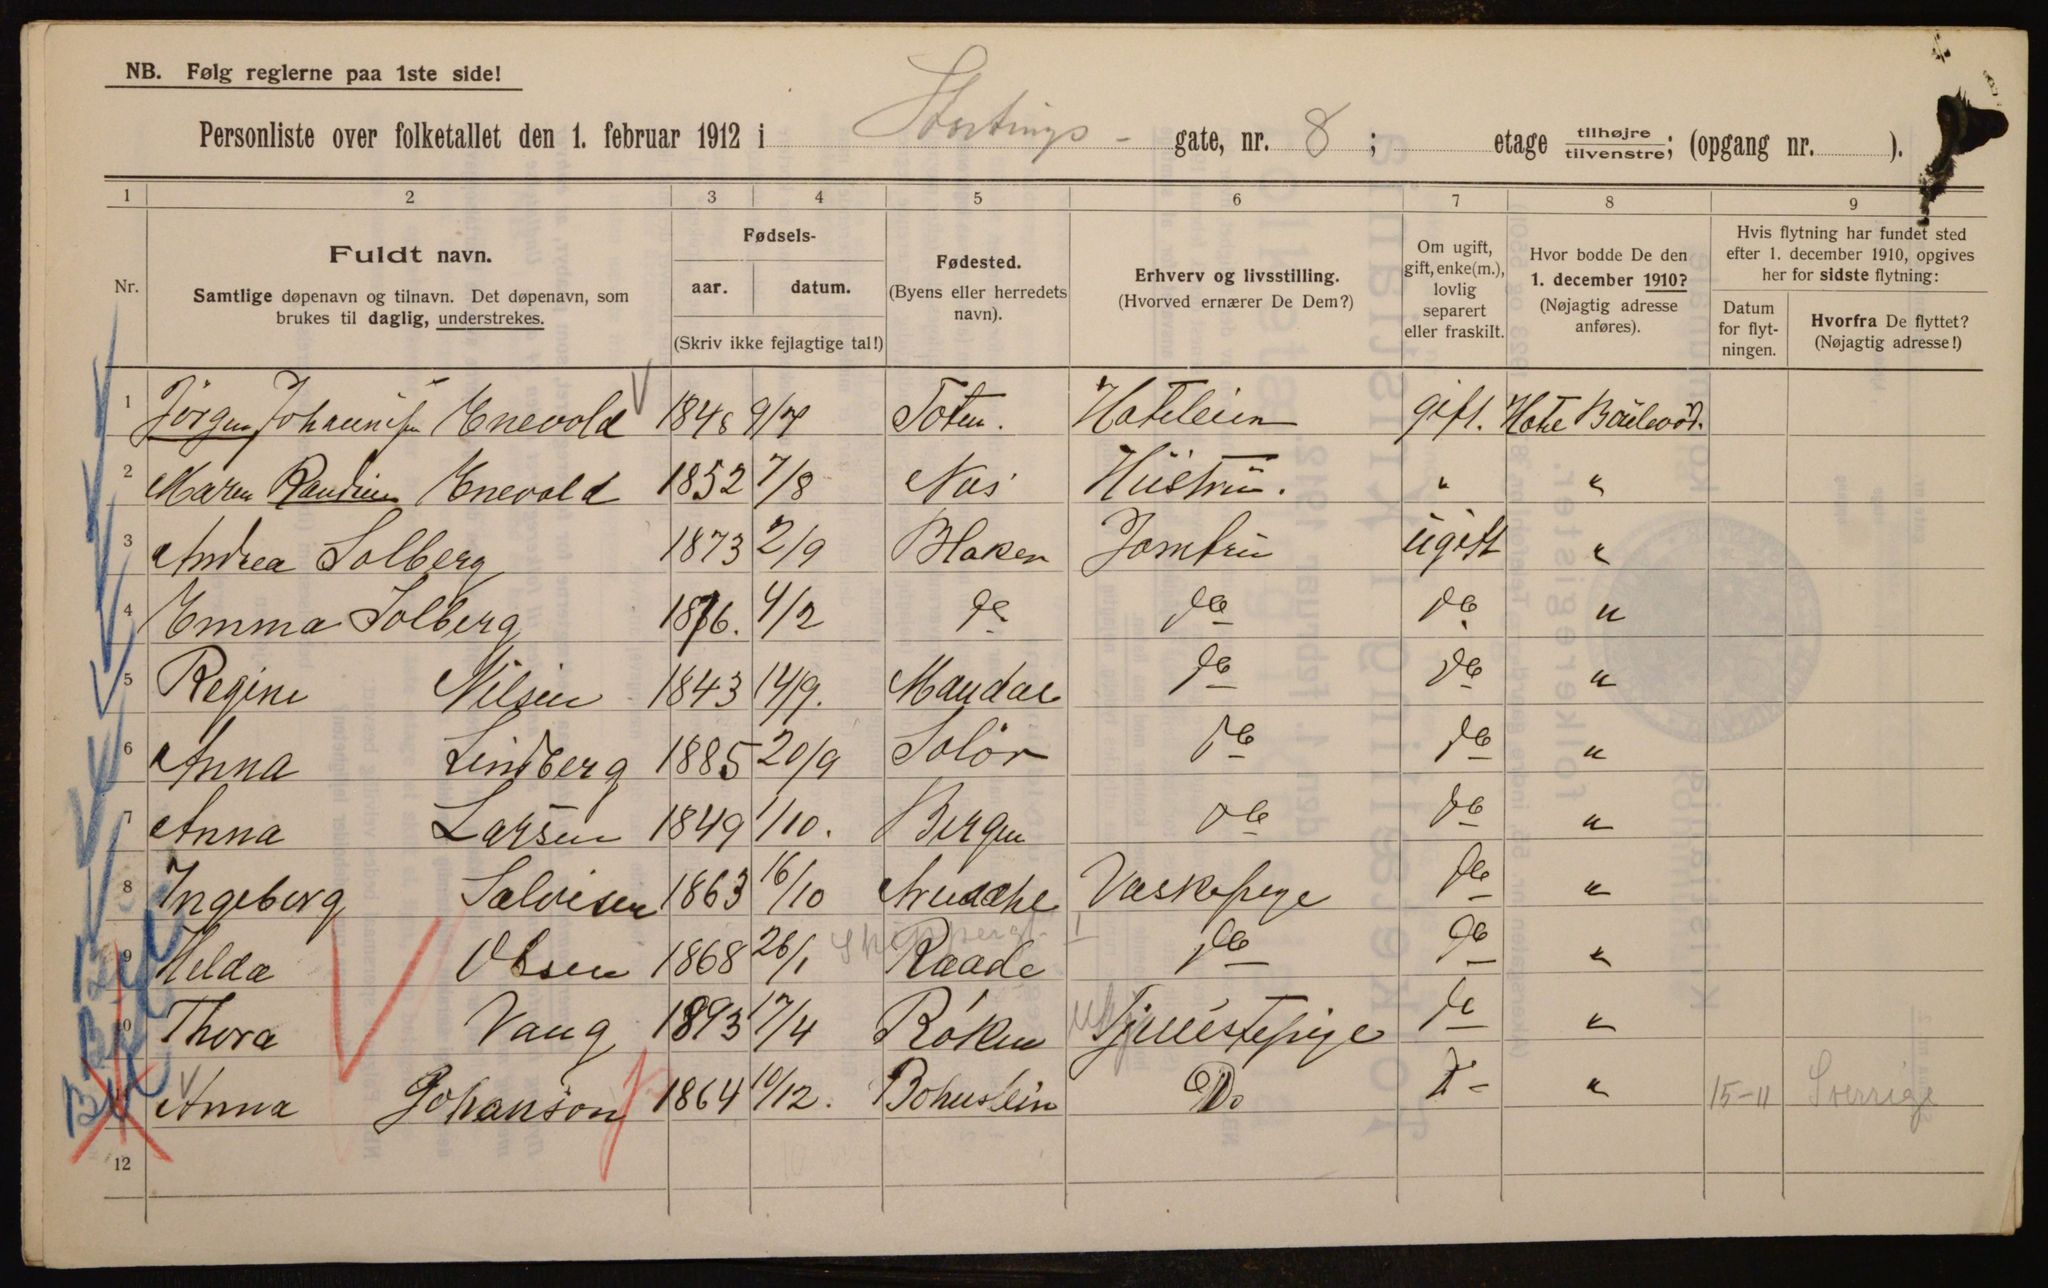 NB. Følg reglerne paa 1ste side!
Personliste over folketallet den 1. februar 1912 i Stortings- gate, nr. 8 ; etage tilhøjre tilvenstre; (opgang nr. ).
1 2 3 4 5 6 7 8 9
Nr.
Fuldt navn.
Samtlige døpenavn og tilnavn. Det døpenavn, som
brukes til daglig, understrekes.
Fødsels-
aar. datum.
(Skriv ikke fejlagtige tal!)
Fødested.
(Byens eller herredets
navn).
Erhverv og livsstilling.
(Hvorved ernærer De Dem?)
Om ugift,
gift, enke(m.),
lovlig
separert
eller fraskilt.
Hvor bodde De den
1. december 1910?
(Nøjagtig adresse
anføres).
Hvis flytning har fundet sted
efter 1. december 1910, opgives
her for sidste flytning:
Datum
for flyt-
ningen.
Hvorfra De flyttet?
(Nøjagtig adresse!)
1 Jörgen Enevold 1848 9/7 Toten. gift.
2 Maren Enevold 1852 7/8 Nes Hüstrü. " "
3 Andrea Solberg 1873 2/9 Blaker Jomfrü ügift "
4 Emma Solberg 1876. 4/2 do do do "
5 Regine Nilsen 1843 14/9. Mandal do do "
6 Anna Lindberg 1885 20/9 Solör do do "
7 Anna Larsen 1849 1/10. Bergen do do "
8 Ingeborg 1863 16/10 Vaskepige do "
9 Helda Olsen 1868 26/1 Raade do do "
10 Thora Vang 1893 17/4 Röken Tjenestepige do "
11 Anna Johanson 1864 10/12. Bohuslein Do D- " 15-11 Sverrige
12